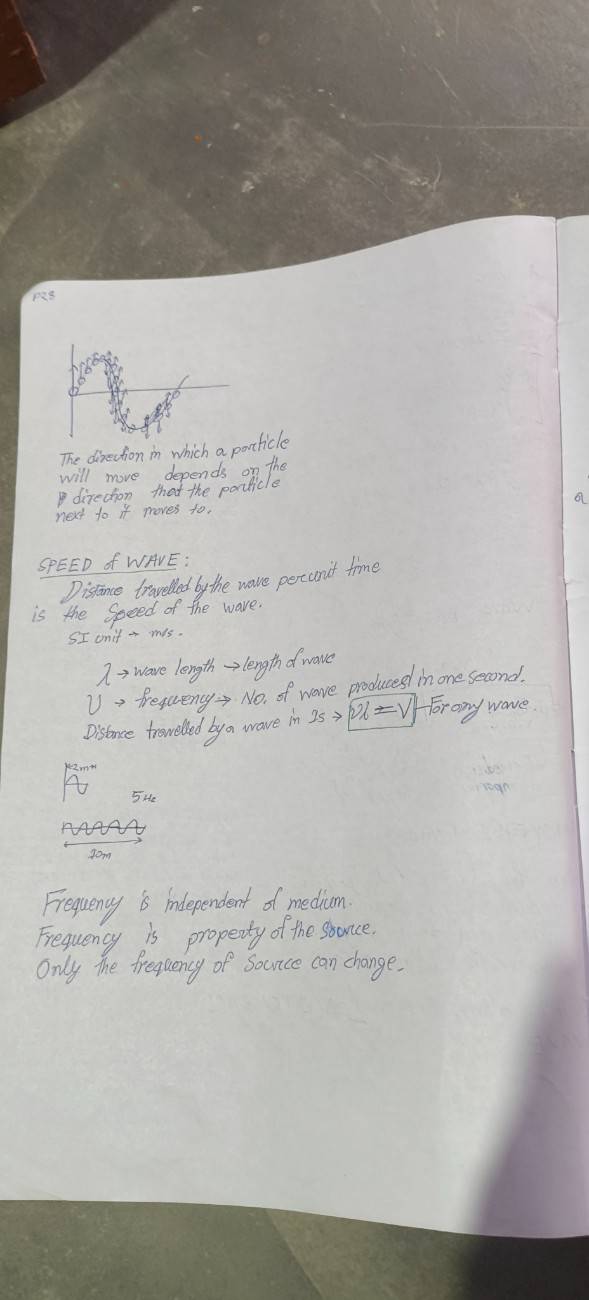 P28
The direction in which a particle
will move depends on the
direction that the particle
next to it moves to.
SPEED of WAVE:
Distance travelled by the wave per unit time
is the Speed of the wave.
SI unit → m/s.
λ → wave length → length of wave
υ → frequency → No. of wave produced in one second.
Distance travelled by a wave in 1s → υλ = V For any wave.
2m
5Hz
10m
Frequency is independent of medium.
Frequency is property of the source.
Only the frequency of Source can change.